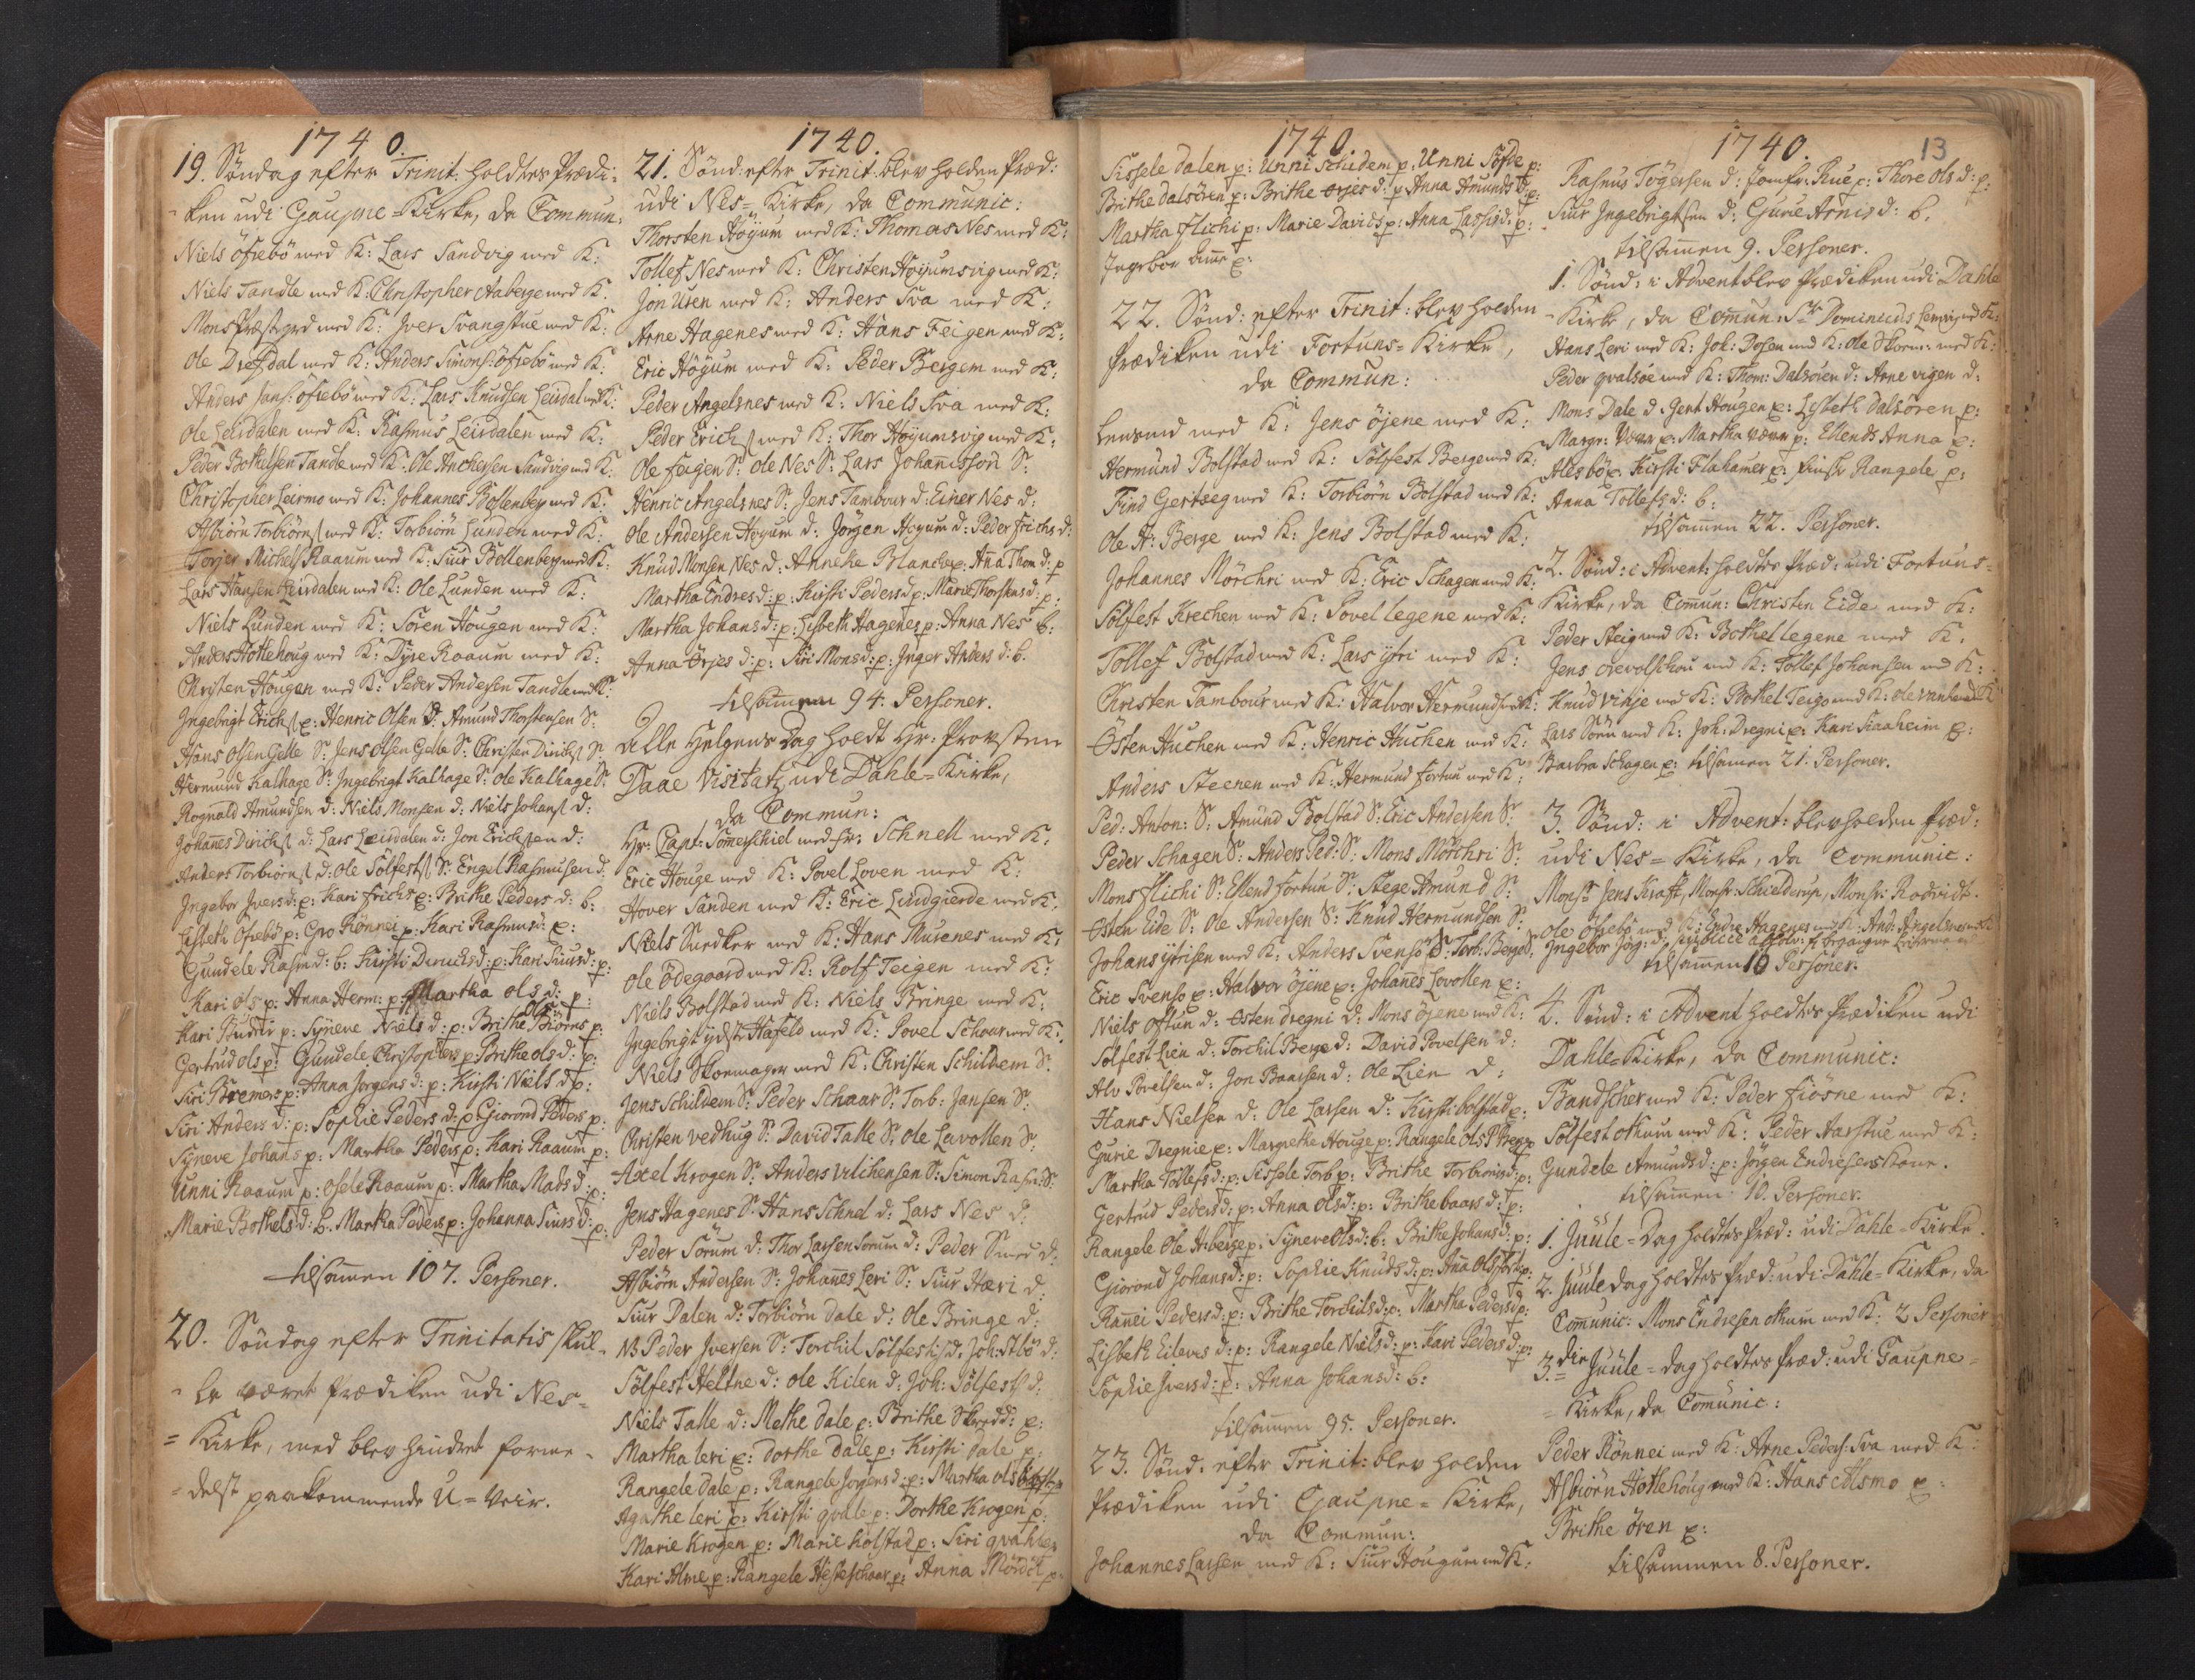 1740.
19. Søndag efter Trinit: holdtes Prædi-
ken udi Gaupne-Kirke, da Commun:
Niels öfrebö med K: Lars Sandvig med K:
Niels Tandle med K: Christopher Aaberge med K:
Mons Præstgrd med K: Iver Svangstue med K:
Ole Drefdal med K: Anders Simons: öfrebö med K:
Anders Jans: öfrebö med K: Lars Knudsen Leirdal med K:
Ole Leirdalen med K: Rasmus Leirdalen med K:
Peder Bothelsen Tandle med K: Ole Anchersen Sandvig med K:
Christopher Leirmo med K: Johannes Bollenberg med K:
Asbiörn Torbiörns med K: Torbiörn Lunden med K:
Torjer Michels Raaum med K: Siur Bollenberg med K:
Lars Hansen Leirdalen med K: Ole Lunden med K:
Niels Lunden med K: Sören Hougen med K:
Anders Hottehoug med K: Dyre Raaum med K:
Christen Hougen med K: Peder Andersen Tandle med K:
Ingebrigt Erichs p: Henric Olsen S: Amund Thorstensen S:
Hans Olsen Gelle S: Jens Olsen Gelle S: Christen Dirichs S:
Hermund Kalhage S: Ingebrigt Kalhage S: Ole Kalhage S:
Rognald Amundsen d: Niels Monsen d: Niels Johans d:
Johanes Dirichs d: Lars Leirdalen d: Jon Erichsen d:
Anders Torbiörns d: Ole Sölfests S: Engel Rasmusen d:
Ingebor Ivers d: p: Kari Erichs p: Brithe Peders d: b:
Lisbeth Ofrebö p: Gro Rönnei p: Kari Rasmus d: p:
Gundele Rasm d: b: Kirsti Dirichs d: p: Kari Siurs d: p:
Kari Ols p: Anna Herm: p: Martha Ols d: p:
Kari p: Syneve Niels d: p: Brithe Ols: Biörns p:
Gertrud Ols p: Gundele Christophers p: Brithe Ols d: p:
Siri Bremers p: Anna Jorgens d: p: Kirsti Niels d: p:
Siri Anders d: p: Sophie Peders d: p: Giorond Peders p:
Syneve Johans p: Martha Peders p: Kari Raaum p:
Unni Raaum p: Osele Raaum p: Martha Mads d: p:
Marie Bothels d: b. Martha Peders p: Johanna Siurs d: p:
tilsamen 107. Personer.
20. Søndag efter Trinitatis skul-
de været Prædiken udi Nes-
= Kirke, med blev hindret forme-
= delst paakommende U=Veir.
1740.
21. Sönd: efter Trinit: blev holden Præd:
udi Nes=Kirke, da Communic:
Thorsten Höyum med K: Thomas Nes med K:
Tollef Nes med K: Christen Höyumsvig med K:
Jon Uren med K: Anders Sva med K:
Arne Hagenes med K: Hans Feigen med K:
Eric Höyum med K: Peder Bergem med K:
Peder Angelsnes med K: Niels Sva med K:
Peder Erichs med K: Thor Höyumsvig med K:
Ole Feigen S: Ole Nes S: Lars Johanesson S:
Henric Angelsnes S: Jens Tambour d: Einer Nes d:
Ole Andersen Höyum d: Jörgen Höyum d: Peder Erichs d:
Knud Monsen Nes d: Anneke Blanche p: Ana Thom d: p
Martha Endres d: p: Kirsti Peders d: p: Marie Thorstens d: p:
Martha Johans d: p: Lisbeth Hagenes p: Anna Nes b:
Anna Örjes d: p: Siri Mons d: p: Inger Anders d: b.
tilsammen 94. Personer.
Alle Helgens Dag holdt Hr: Provsten
Daae Visitatz udi Dahle=Kirke,
da Commun:
Hr: Capt: Somerschiel med fr: Schnell med K:
Eric Houge med K: Povel Loven med K:
Hover Sanden med K: Eric Lindgierde med K:
Niels Snedker med K: Hans Musenes med K:
Ole Ödegaard med K: Rolf Teigen med K:
Niels Bolstad med K: Niels Bringe med K:
Ingebrigt ydste Hafeld med K: Povel Schaar med K:
Niels Skoemager med K: Christen Schildem S:
Jens Schildem S: Peder Schaar S: Torb: Jansen S:
Christen Vedhug S: David Talle S: Ole Lavollen S:
Axel Krogen S: Anders Vilchensen S: Simon Rasm: S:
Jens Hagenes S: Hans Schnel d: Lars Nes d:
Peder Sorum d: Thor Larsen Sorum d: Peder Smed d:
Asbiörn Andersen S: Johanes Leri S: Siur Hæri d:
Siur Dalen d: Torbiörn Dale d: Ole Bringe d:
NB Peder Iversen S: Torchil Sölfests d: Joh: Stbö d:
Sölfest Heltne d: Ole Kilen d: Joh: Sölfests d:
Niels Talle d: Methe Dale p: Brithe Skredd: p:
Martha Leri p: Dorthe Dale p: Kirsti Dale p:
Rangele Dale p: Rangele Jorgens d: p: Martha Ols
Agathe Leri p: Kirsti qvale p: Dorthe Krogen p:
Marie Krogen p: Marie Kolstad p: Siri qvahle p
Kari Alme p: Rangele Hesteschaar p: Anna Mördch p.
1740.
Sissele Dalen p: Unni Schildem p: Unni Söfde p:
Brithe Dalsören p: Brithe Örjes d: p Anna Amunds d: p:
Martha Flichi p: Marie Davids p: Anna Lassis d: p:
Ingebor Ame p:
22. Sönd: efter Trinit: blev holden
Prædiken udi Fortuns=Kirke,
da Commun:
Lensmd med K: Jens öjene med K:
Hermund Bolstad med K: Sölfest Berge med K:
Find Gertseg med K: Torbiörn Bolstad med K:
Ole A: Berge med K: Jens Bolstad med K:
Johannes Mörchri med K: Eric Schagen med K:
Sölfest Krechen med K: Povel Legene med K:
Tollef Bolstad med K: Lars ytri med K:
Christen Tambour med K: Halvor Hermunds med K:
Östen Huchen med K: Henric Huchen med K:
Anders Steenen med K: Hermund Fortun med K:
Ped: Anton: S: Amund Bolstad S: Eric Andersen S:
Peder Schagen S: Anders Ped: S: Mons Mörchri S:
Mons Flichi S: Ellend Fortun S: Stege Amund S:
Osten Eide S: Ole Andersen S: Knud Hermundsen S:
Johans ytrisen med K: Anders Svensö S: Torb: Berge d:
Eric Svensö p: Halvor Öjene p: Johanes Lovollen p:
Niels Oftun d: Osten Dregni d: Mons öjene med K:
Sölfest Lien d: Torchil Berge d: David Povelsen d:
Alv Povelsen d: Jon Baarsen d: Ole Lien d:
Hans Nielsen d: Ole Larsen d: Kirsti Bolstad p:
Gurie Dregnie p: Margrethe Houge p: Rangele Ols
Martha Tollefs d: p: Sissele Torb p: Brithe Torbiörns d: p:
Gertrud Peders d: p: Anna Ols d: p: Brithe Baars d: p:
Rangele Ole A: berge p: Syneve Ols d: b: Brithe Johans d: p:
Giorond Johans d: p: Sophie Knuds d: p: Ana Ols fort: p:
Ranei Peders d: p: Brithe Torchils d: p: Martha Peders d: p:
Lisbeth Eilevs d: p: Rangele Niels d: p: Kari Peders d: p:
Sophie Ivers d: p: Anna Johans d: b:
tilsamen 95. Personer.
23. Sönd: efter Trinit: blev holden
Prædiken udi Gaupne=Kirke,
da Commun:
Johannes Larsen med K: Siur Hougum med K:
1740. 13
Rasmus Törgersen d: Jomfr: Rue p: Thore Ols d: p:
Siur Ingebrigtsen d: Gurie Arnis d: b.
tilsamen 9. Personer.
1. Sönd: i Advent blev Prædiken udi Dahle
Kirke, da Comun: Sr Dominicus med K:
Hans Leri med K: Joh: Dosen med K: Ole Skoem: med K:
Peder qvalsöe med K: Thom: Dalsören d: Arne vigen d:
Mons Dale d: Gent Hougen p: Lisbeth Dalsören p:
Margr: p: Martha p: Ellends Anna p:
Alesbö p: Kirsti Flahamer p: Rangele p:
Anna Tollefs d: b:
tilsamen 22. Personer.
2. Sönd: i Advent: holdtes Præd: udi Fortuns=
Kirke, da Comun: Christen Eide med K:
Peder Steig med K: Bothel Legene med K:
Jens med K: Tollef Johansen med K:
Knud Vinje med K: Bothel Teigo med K: Ole med K
Lars Sörn med K: Joh: Dregni p: Kari Kaaheim p:
Barbra Schagen p: tilsamen 21. Personer.
3. Sönd: i Advent: blev holden Præd:
udi Nes=Kirke, da Communic:
Monsr: Jens Kraft, Monsr: Schielderup, Monsr: Rodvidt.
Ole Öfrebö med K: Endre Hagenes med K: And: Angelsnes med K
Ingebor Jörg: d: publice absolv:
tilsamen 10 Personer.
4. Sönd: i Advent holdtes Prædiken udi
Dahle=Kirke, da Communic:
Bandscher med K: Peder Fiösne med K:
Sölfest Otkum med K: Peder Aarstue med K:
Gundele Amunds d: p: Jörgen Endresens Kone.
tilsamen: 10. Personer.
1. Juule=Dag holdtes Præd: udi Dahle=Kirke.
2. Juule dag holdtes Præd: udi Dahle=Kirke, da
Comunic: Mons Endresen otkum med K: 2 Personer
3.die Juule=dag holdtes Præd: udi Gaupne=
= Kirke, da Comunic:
Peder Rönnei med K: Arne Peders: Sva med K:
Asbiörn Hottehoug med K: Hans Alsmo p:
Brithe ören p:
tilsammen 8. Personer.